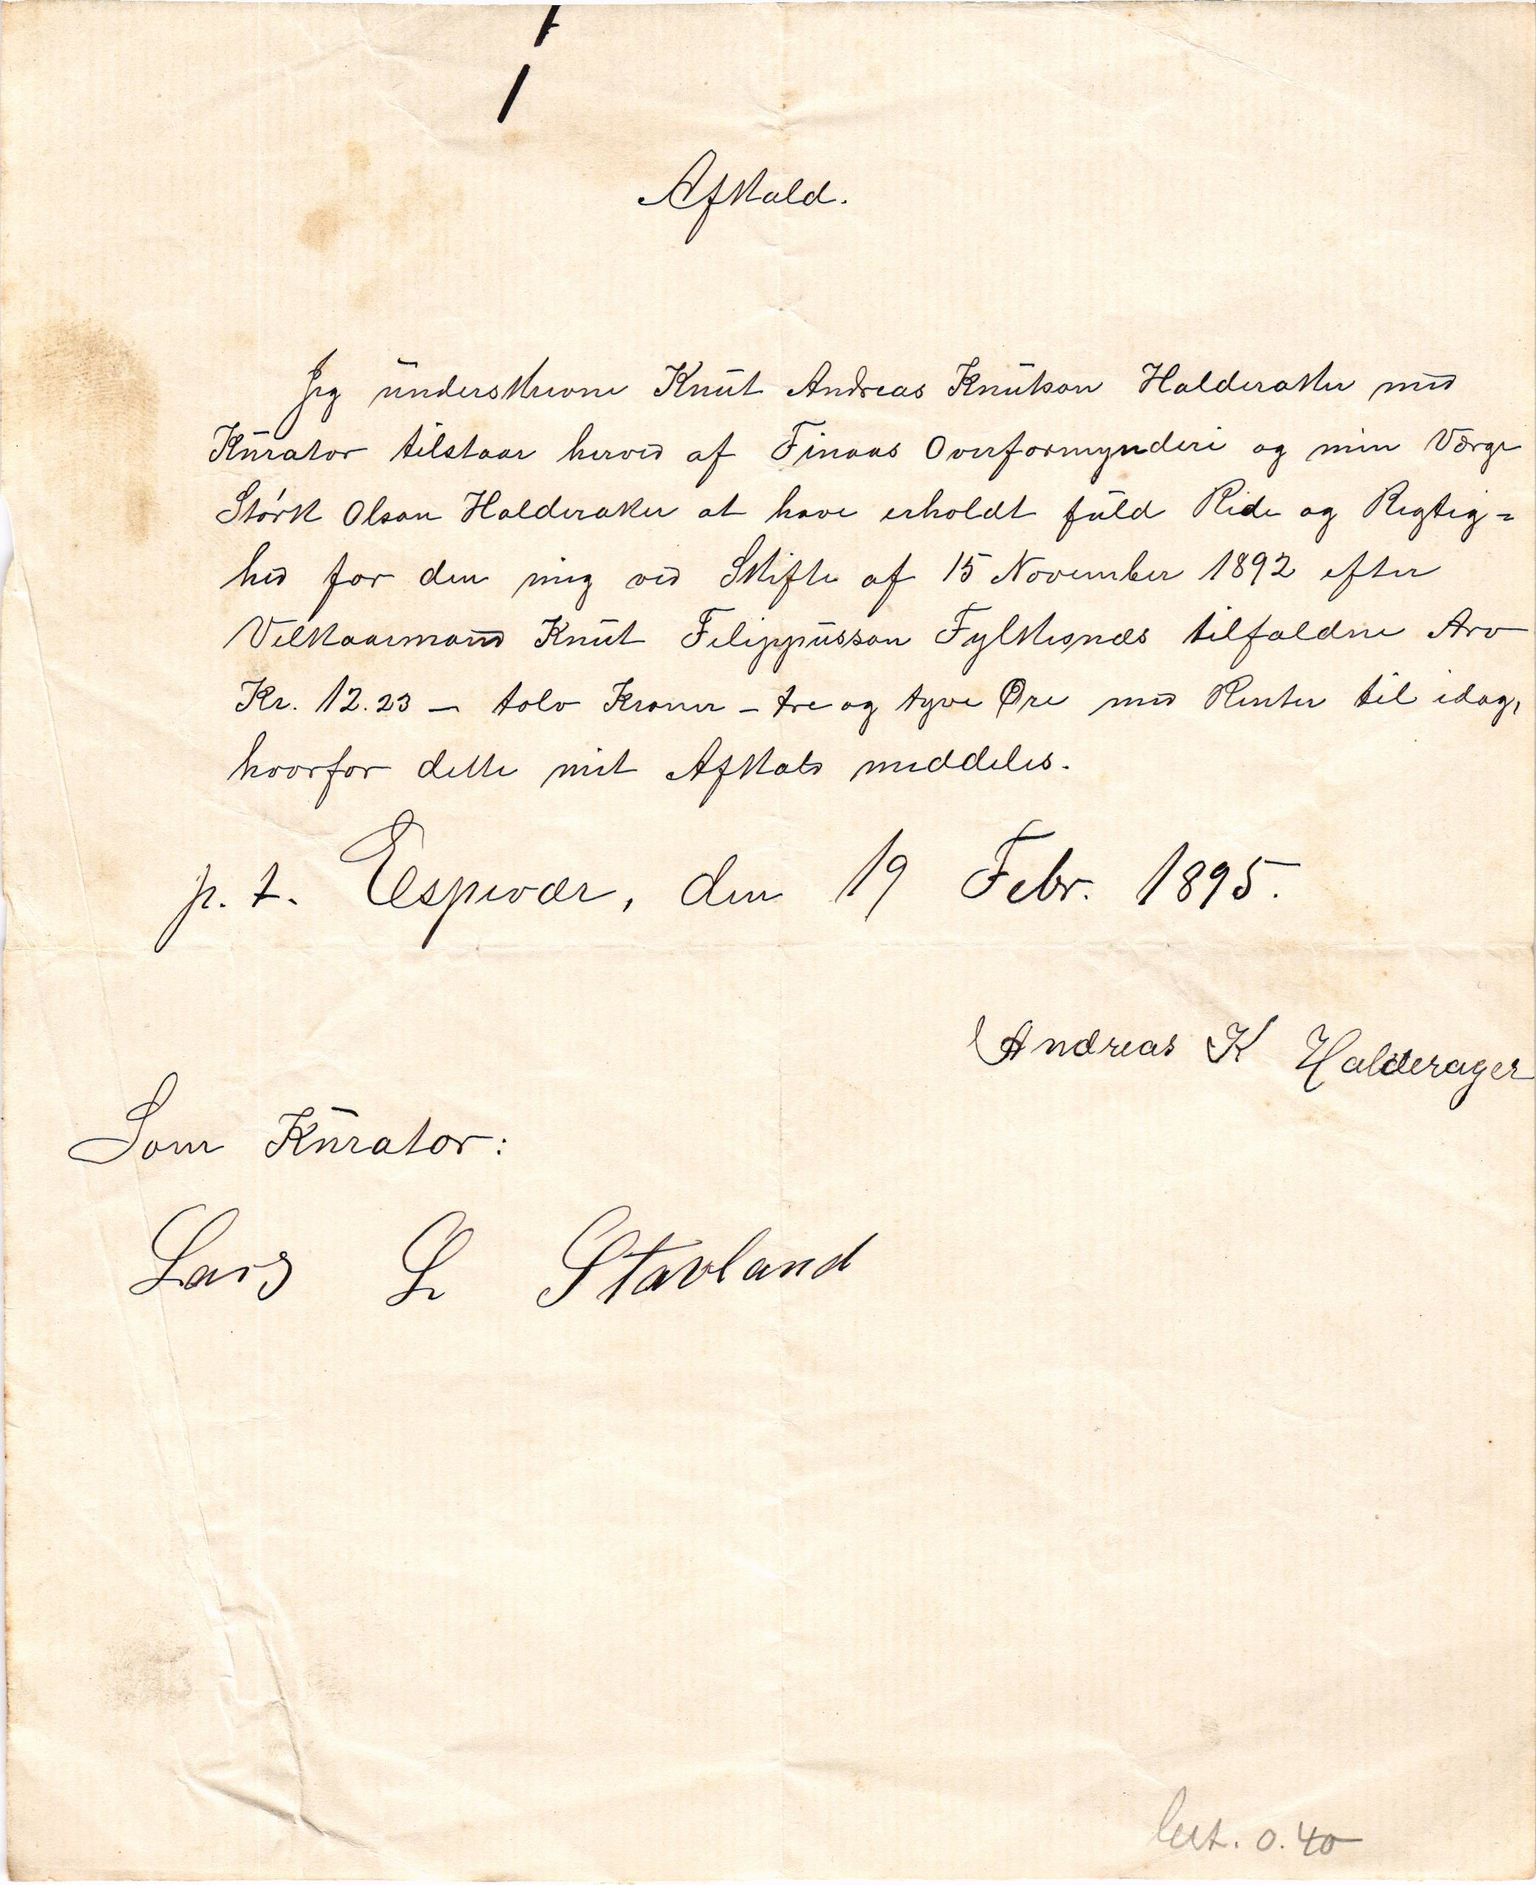 Afkald.
Jeg underskrevne Knut Andreas Knutson Halderaker med
Kurator tilstaar herved af Finaas Overformynderi og min Værge
Størk Olson Halderaker at have erholdt fuld Rede og Rigtig=
hed for den mig ved Skifte af 15 November 1892 efter
Velkaarmand Knut Filippusson Fylkesnæs tilfaldne Arv
Kr. 12.23 — tolv Kroner – tre og tyve Øre med Renter til idag,
hvorfor dette mit Afkald meddeles.
p. t. Espevær, den 19 Febr. 1895.
Andreas K Halderager
Som Kurator:
Lars L Stavland
0.40